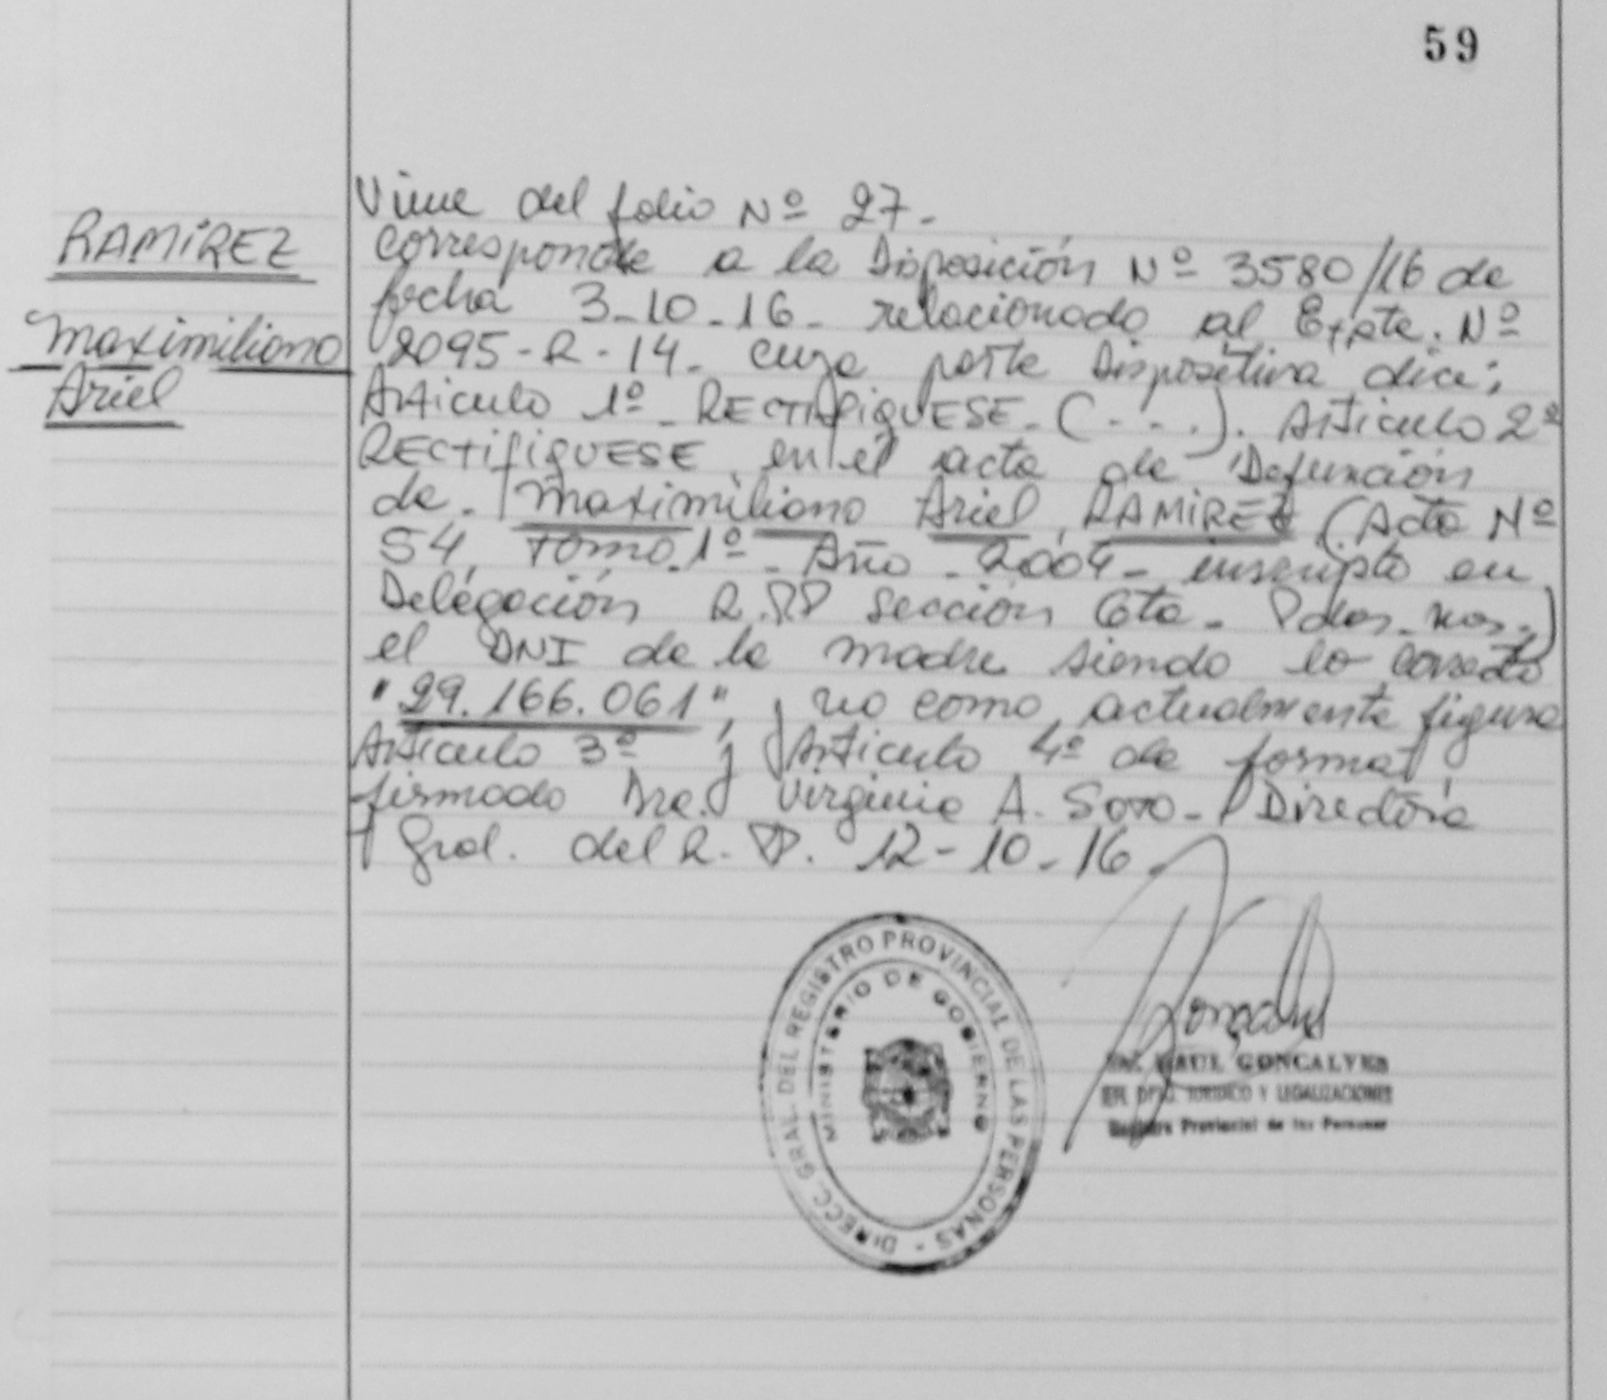 59
RAMIREZ
Maximiliano
Ariel
Viene del folio Nº 27-
Corresponde a la Disposición Nº 3580/16 de
fecha 3-10-16- relacionado al Expte. Nº
2095-R-14- cuya parte Dispositiva dice:
Articulo 1º- RECTIFIQUESE- (...). Articulo 2º
RECTIFIQUESE en el acta de Defunción
de. Maximiliano Ariel RAMIREZ (Acta Nº
54, Tomo. 1º- Año- 2004- inscripta en
Delegación R.PP Sección 6ta- Pdas. Mnes.)
el DNI de la madre siendo lo correcto
"29.166.061", y no como actualmente figura
Articulo 3º y Articulo 4º de forma
firmado Dra. Virginia A. Soto- Directora
Gral. del R.PP. 12-10-16
DIRECC. GRAL. DEL REGISTRO PROVINCIAL DE LAS PERSONAS -
MINISTERIO DE GOBIERNO
RAUL GONCALVES
JURIDICO Y LEGALIZACIONES
Registro Provincial de las Personas